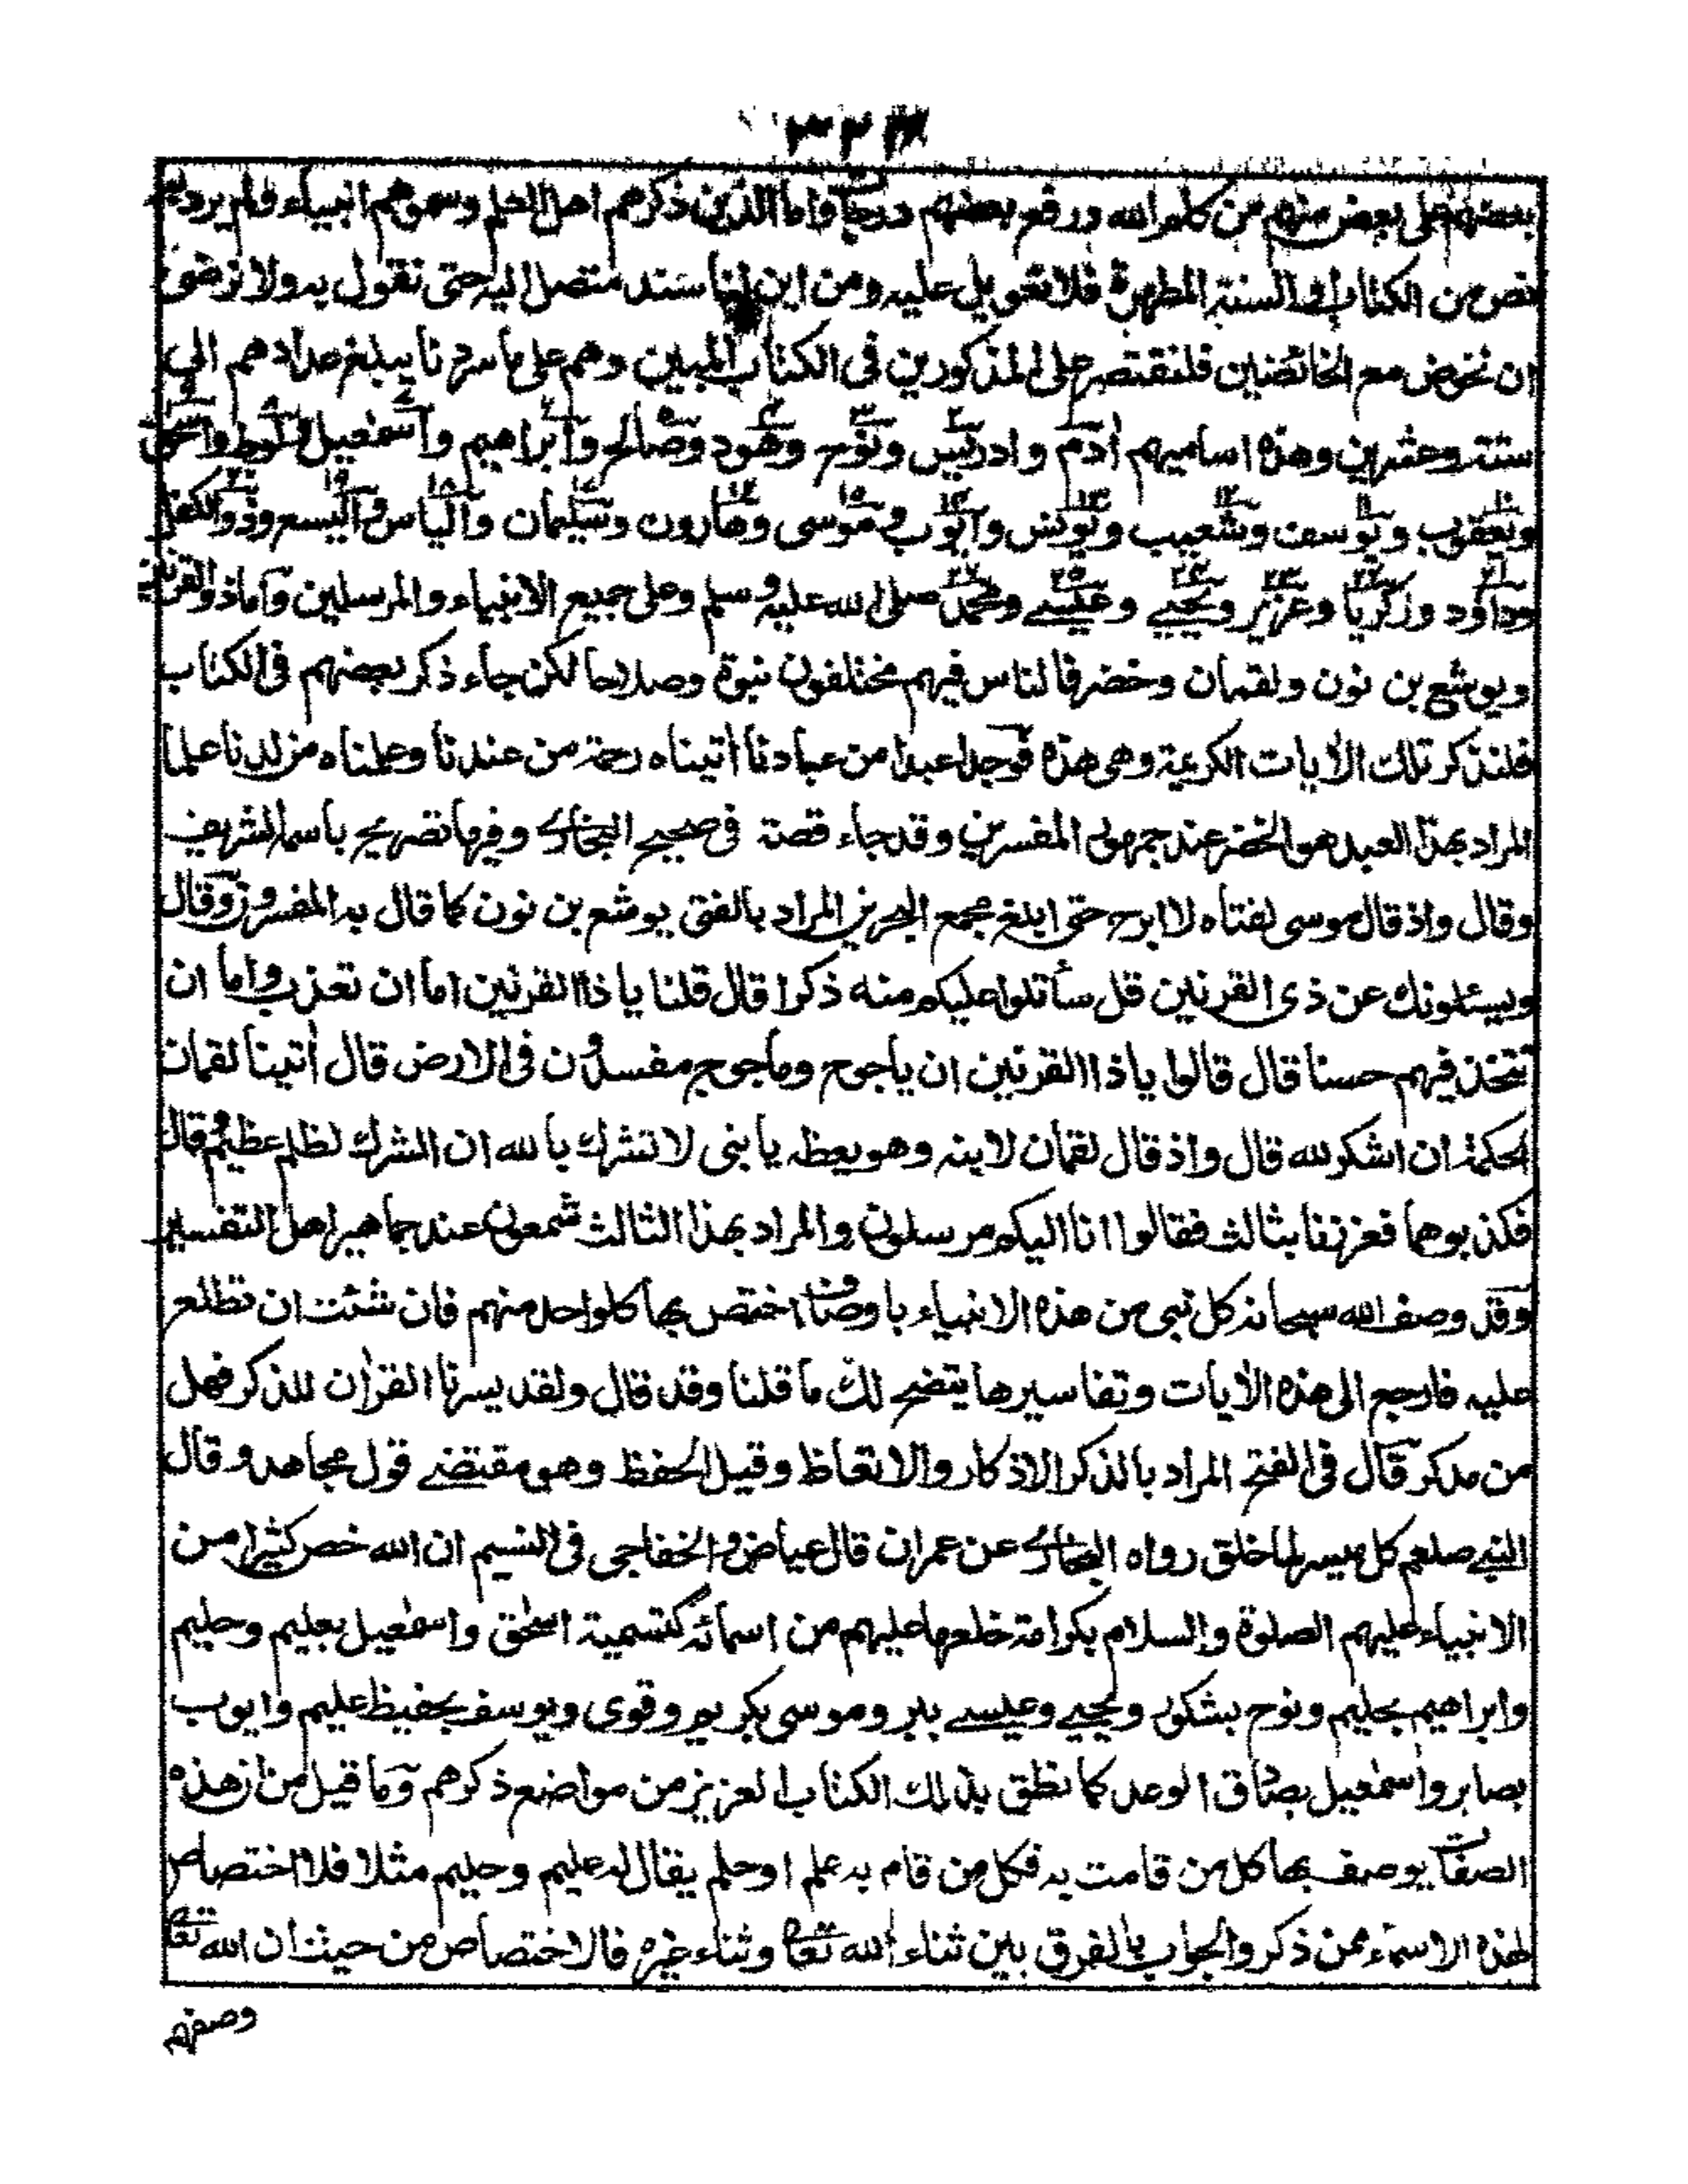 بعضهم على بعض منهم من كلم الله ورفع بعضهم درجات واما الذين ذكرهم اهل العلم وسموهم انبياء فلم يرد به
نص من الكتاب والسنة المطهرة فلا تعويل عليه ومن اين لنا سند متصل اليه حتى نقول به ولا نرضى
ان نخوض مع الخائضين فلنقتصر على المذكورين فى الكتاب المبين وهم على ما سردنا يبلغ عدادهم الى
ستة وعشرين وهذه اساميهم اٰدم وادريس ونوح وهود وصالح وابراهيم واسمٰعيل ولوط واسحٰق
ويعقوب ويوسف وشعيب ويونس وايوب وموسى وهارون وسليمان والياس واليسع وذو الكفل
وداؤد وزكريا وعزير ويحيے وعيسے ومحمد صلى الله عليه وسلم وعلى جميع الانبياء والمرسلين واما ذو القرنين
ويوشع بن نون ولقمان وخضر فالناس فيهم مختلفون نبوة وصلاحا لكن جاء ذكر بعضهم فى الكتاب
فلنذكر تلك الاٰيات الكريمة وهى هذه فوجدا عبدا من عبادنا اٰتيناه رحمة من عندنا وعلمناه من لدنا علما
المراد بهذا العبد هو الخضر عند جمهور المفسرين وقد جاء قصته فى صحيح البخارى وفيها تصريح باسمه الشريف
وقال واذ قال موسى لفتاه لا ابرح حتى ابلغ مجمع البحرين المراد بالفتى يوشع بن نون كما قال به المفسرون وقال
ويسئلونك عن ذى القرنين قل سأتلوا عليكم منه ذكرا قال قلنا يا ذا القرنين اما ان تعذب واما ان
تتخذ فيهم حسنا قال قالوا يا ذا القرنين ان ياجوج وماجوج مفسدون فى الارض قال اٰتينا لقمان
الحكمة ان اشكر لله قال واذ قال لقمان لابنه وهو يعظه يا بنى لا تشرك بالله ان الشرك لظلم عظيم وقال
فكذبوهما فعززنا بثالث فقالوا انا اليكم مرسلون والمراد بهذا الثالث شمعون عند جماهير اهل التفسير
وقد وصف الله سبحانه كل نبى من هذه الانبياء باوصاف اختص بها كلواحد منهم فان شئت ان تطلع
عليه فارجع الى هذه الاٰيات وتفاسيرها يتضح لك ما قلنا وقد قال ولقد يسرنا القراٰن للذكر فهل
من مدكر قال فى الفتح المراد بالذكر الاذكار والاتعاظ وقيل الحفظ وهو مقتضے قول مجاهد وقال
النبے صلعم كل ميسر لما خلق رواه البخارى عن عمران قال عياض والخفاجى فى النسيم ان الله خص كثيرا من
الانبياء عليهم الصلوة والسلام بكرامة خلعها عليهم من اسمائه كتسمية اسحٰق واسمٰعيل بعليم وحليم
وابراهيم بحليم ونوح بشكور ويحيے وعيسے ببر وموسى بكريم وقوى ويوسف بحفيظ عليم وايوب
بصابر واسمٰعيل بصادق الوعد كما نطق بذلك الكتاب العزيز من مواضع ذكرهم وما قيل من ان هذه
الصفات يوصف بها كل من قامت به فكل من قام به علم او حلم يقال له عليم وحليم مثلا فلا اختصاص
لهذه الاسماء بمن ذكر والجواب بالفرق بين ثناء الله تعالى وثناء غيره فالاختصاص من حيث ان الله تعالى
وصفهم